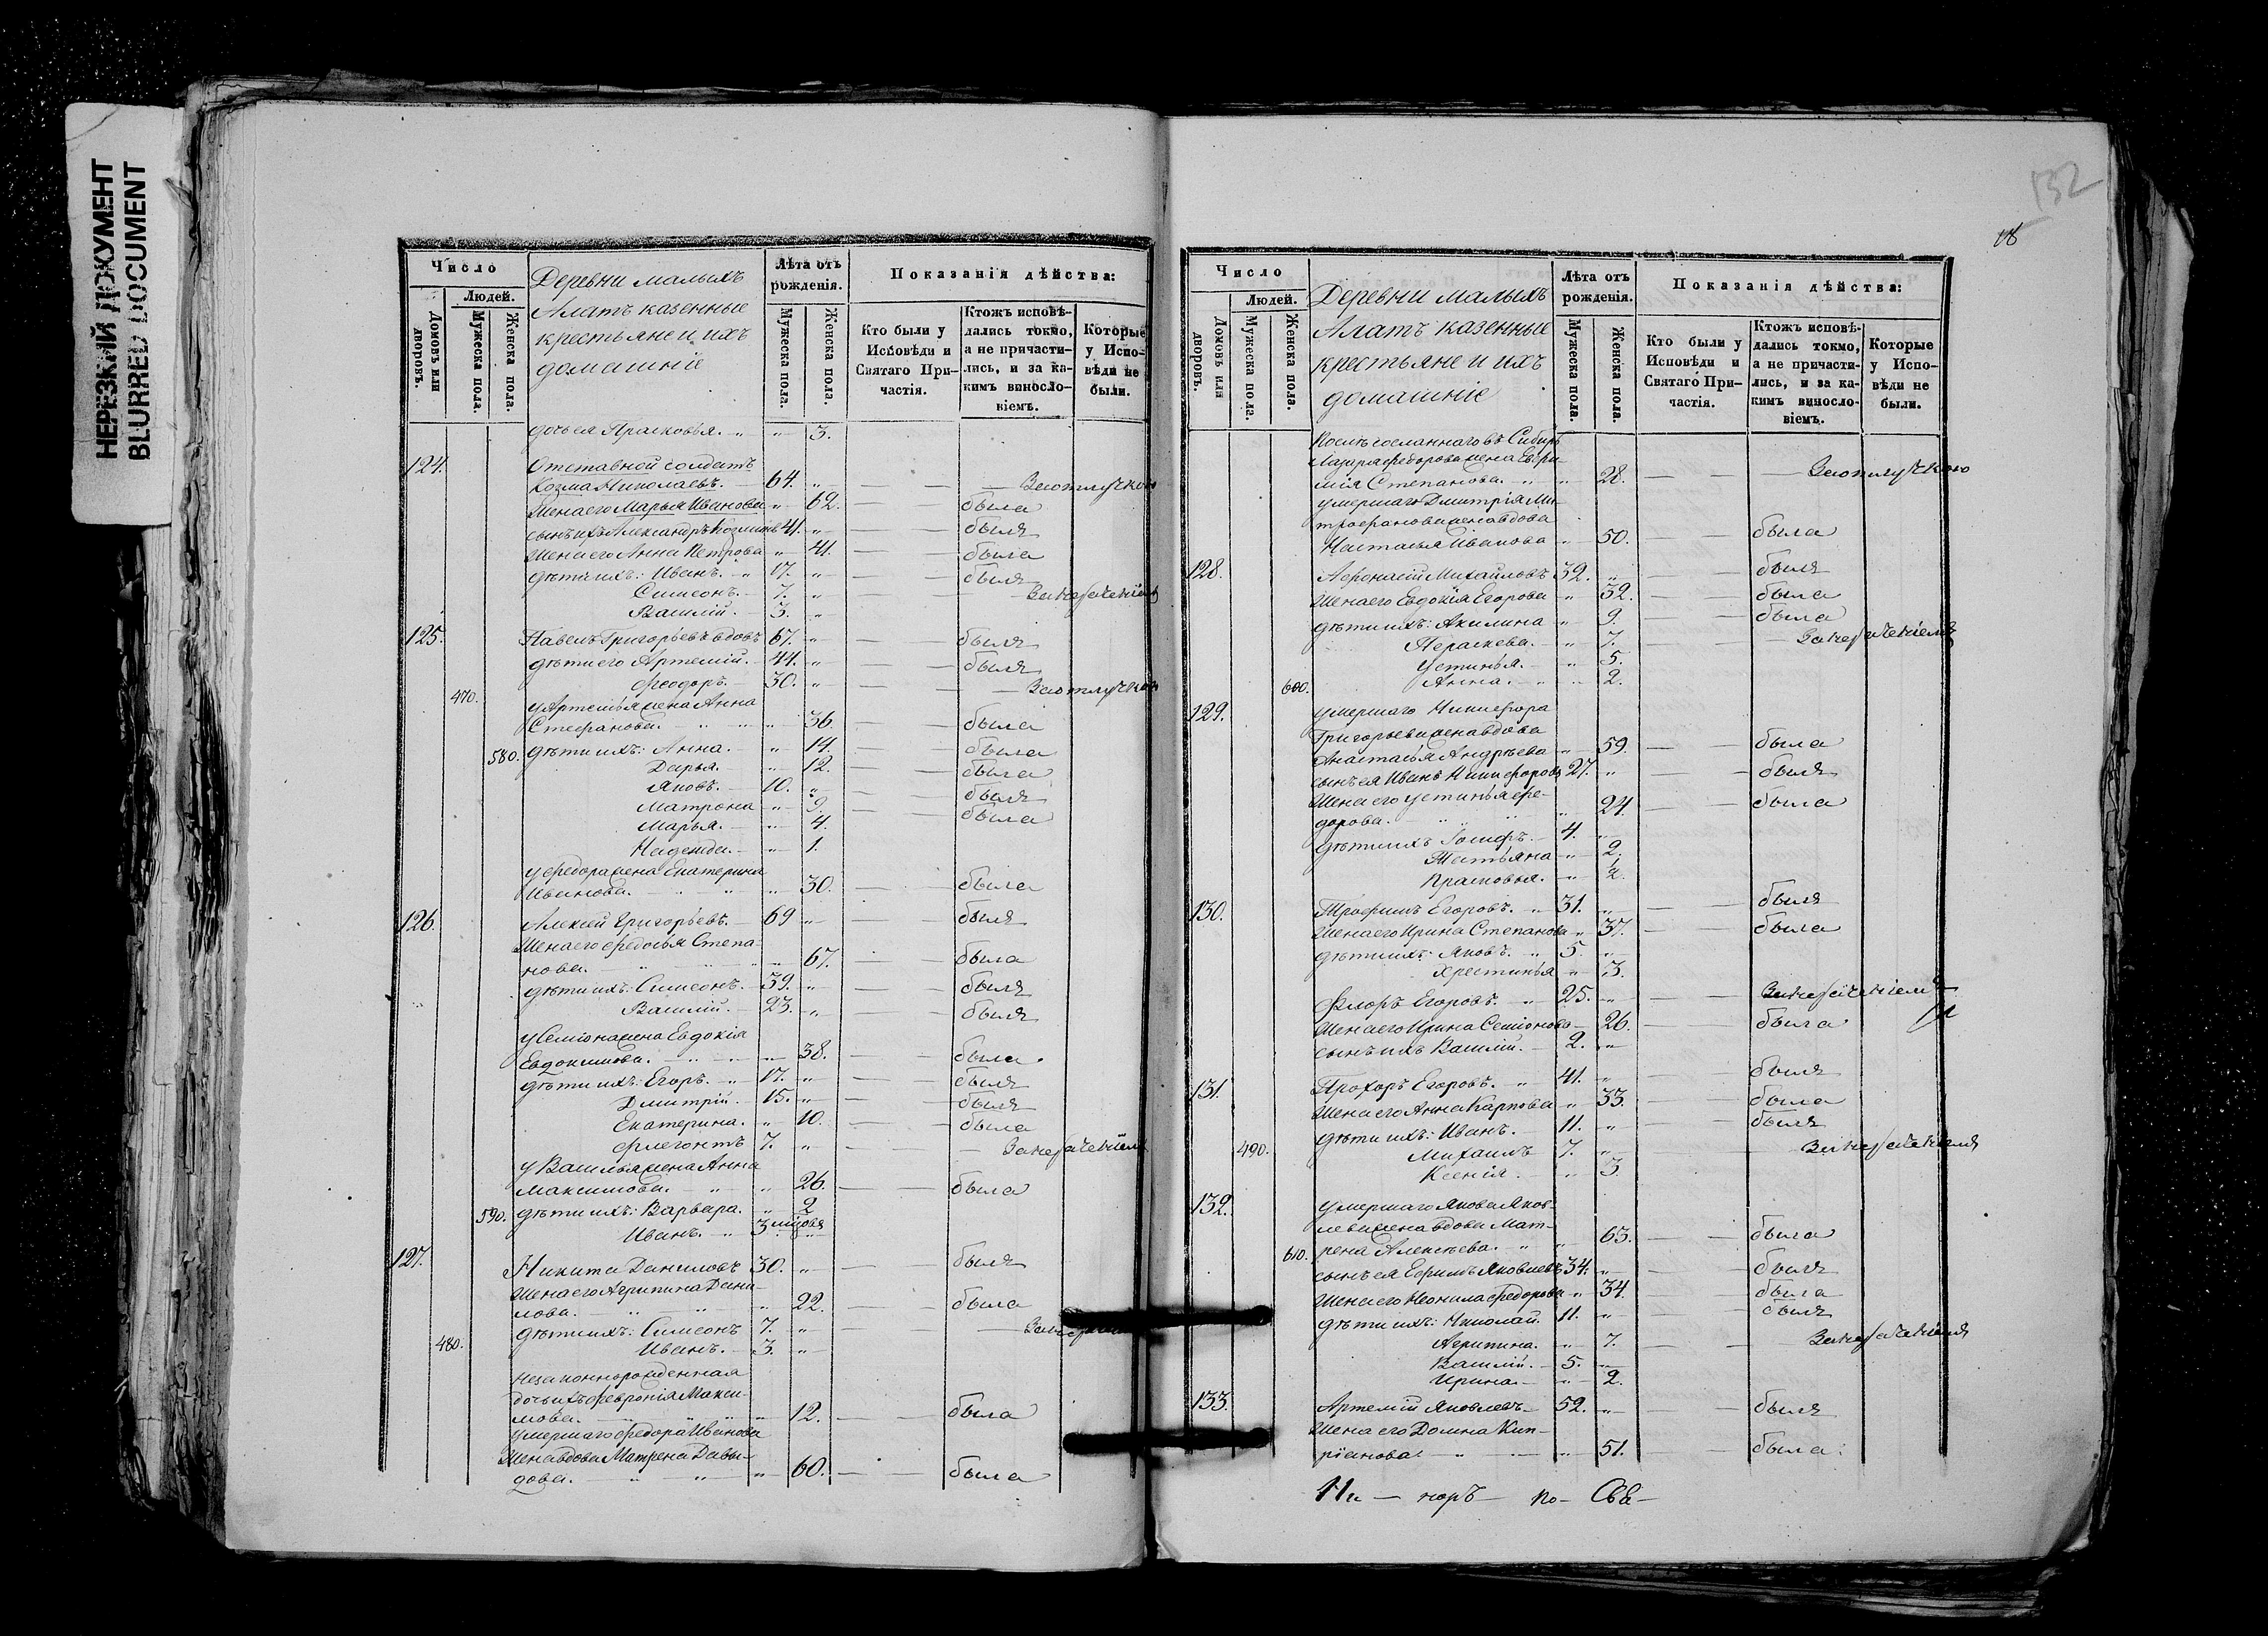 НЕРЕЗКИЙ ДОКУМЕНТ
BLURRED DOCUMENT
Число
Людей.
Домовъ или дворовъ.
Мужеска пола.
Женска пола.
Деревни малыхъ
Алатъ казенные
крестьяне и ихъ
домашніе
Лѣта отъ рожденія.
Мужеска пола.
Женска пола.
Показанія дѣйства:
Кто были у Исповѣди и Святаго При-частія.
Ктожъ исповѣ-дались токмо, а не причасти-лись, и за ка-кимъ виносло-віемъ.
Которые у Испо-вѣди не были.
дочь ея Прасковья. " " 3.
124. Отставной солдатъ
Козма Николаевъ. 64. " За отлучкою
Жена его Марья Иванова " 62. была
сынъ ихъ Александръ Козминъ 41. " былъ
Жена его Анна Петрова " 41. была
дѣти ихъ: Иванъ. " 17. " былъ
Симеонъ. 7. " За нераченіемъ
Василій. 3. "
125. Павелъ Григорьевъ вдовъ 67. " былъ
дѣти его Артемій. 44. " былъ
470. Феодоръ. 30. " За отлучкою
у Артемья жена Анна
Стефанова. " " " 36. была
580. дѣти ихъ: Анна. " 14. была
Дарья. " 12. была
Яковъ. 10. " былъ
Матрона " 9. была
Марья. " 4.
Надежда. " 1.
у Федора жена Екатерина
Иванова. " " " 30. была
126. Алексей Григорьевъ. 69 " былъ
Жена его Федосья Степа-
нова. " " " 67. была
дѣти ихъ: Симеонъ. 39. " былъ
Василій. 23. " былъ
у Семіона жена Евдокія
Евдокимова. " " 38. была.
дѣти ихъ: Егоръ. " 17. " былъ
Дмитрій. 15. " былъ
Екатерина. " 10. была
Флегонтъ 7. " За нераченіемъ
у Василья жена Анна
Максимова. " " 26. была
590. дѣти ихъ: Варвара. " 2
Иванъ. " 3 мѣсяц.
127. Никита Даниловъ 30. " былъ
Жена его Агрипина Дани-
лова. " " " 22. была
дѣти ихъ: Симеонъ 7. "
480. Иванъ. 3. "
незаконнорожденная
дочь ихъ Февронія Макси-
мова. " " " 12. была
умершаго Федора Иванова
Жена вдова Матрена Давы-
дова. " " " 60. была
132
18
Число
Людей.
Домовъ или дворовъ.
Мужеска пола.
Женска пола.
Деревни малыхъ
Алатъ казенные
крестьяне и ихъ
домашніе
Лѣта отъ рожденія.
Мужеска пола.
Женска пола.
Показанія дѣйства:
Кто были у Исповѣди и Святаго При-частія.
Ктожъ исповѣ-дались токмо, а не причасти-лись, и за ка-кимъ виносло-віемъ.
Которые у Испо-вѣди не были.
сосланнаго въ Сибирь
Лазаря Федорова жена Евфи-
мія Степанова. " " 28. За отлучкою
умершаго Дмитрія Ми-
трофанова жена вдова
Настасья Иванова " 50. была
128. Афонасій Михайловъ 32. " былъ
Жена его Евдокія Егорова " 32. была
дѣти ихъ: Акилина " 9. была
Параскева. " 7. За нераченіемъ
Устинья. " 5.
600. Анна. " " 2.
129. умершаго Никифора
Григорьева жена вдова
Анастасья Андрѣева " 59. была
сынъ ея Иванъ Никифоровъ 27. " былъ
Жена его Устинья Фе-
дорова. " " " 24. была
дѣти ихъ Іосифъ. 4. "
Татьяна " 2.
Прасковья. " ½.
130. Трофимъ Егоровъ. " 31. " былъ
Жена его Ирина Степанова " 37. была
дѣти ихъ: Яковъ. " 5. "
Христинья " 3.
Флоръ Егоровъ. " 25. " За нераченіемъ
Жена его Ирина Семіонова 26. была
сынъ ихъ Василій. 2. "
131. Прохоръ Егоровъ. " 41. " былъ
Жена его Анна Карпова " 33. была
дѣти ихъ: Иванъ. 11. " былъ
490. Михаилъ 7. " За нераченіемъ
Ксенія. " 3.
132. умершаго Якова Яков-
лева жена вдова Мат-
610. рена Алексѣева. " " 63. была
сынъ ея Ефимъ Яковлевъ 34. " былъ
Жена его Неонила Федорова " 34. была
дѣти ихъ: Николай. 11. " былъ
Агрипина. " 7. За нераченіемъ
Василій. 5. "
Ирина. " 2.
133. Артемій Яковлевъ 52. " былъ
Жена его Домна Кип-
ріанова. " " 51. была.
норъ — по — Свя —